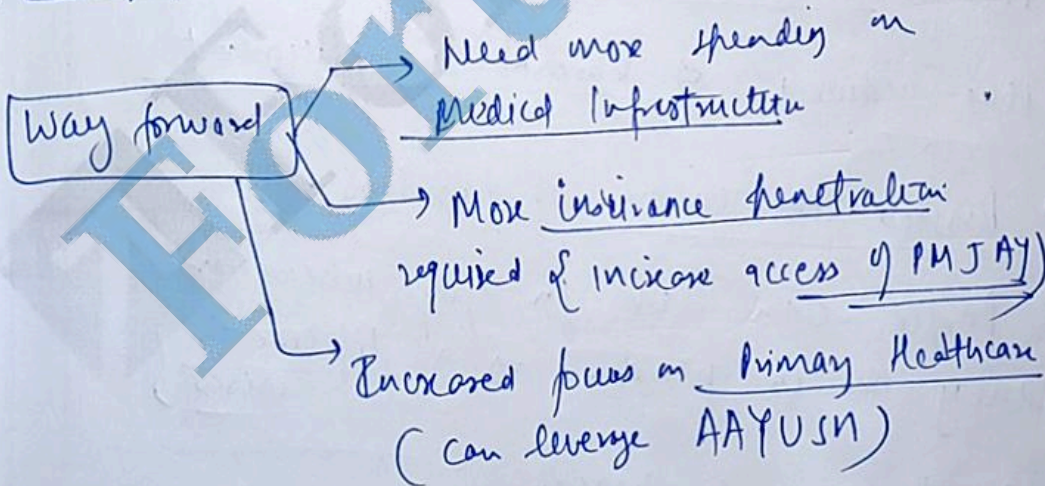 Need more spending on
Way forward
Medical Infrastructure
More insurance penetration
required { increase access of PMJAY)
Increased focus on Primary Healthcare
(can leverage AAYUSH)
For